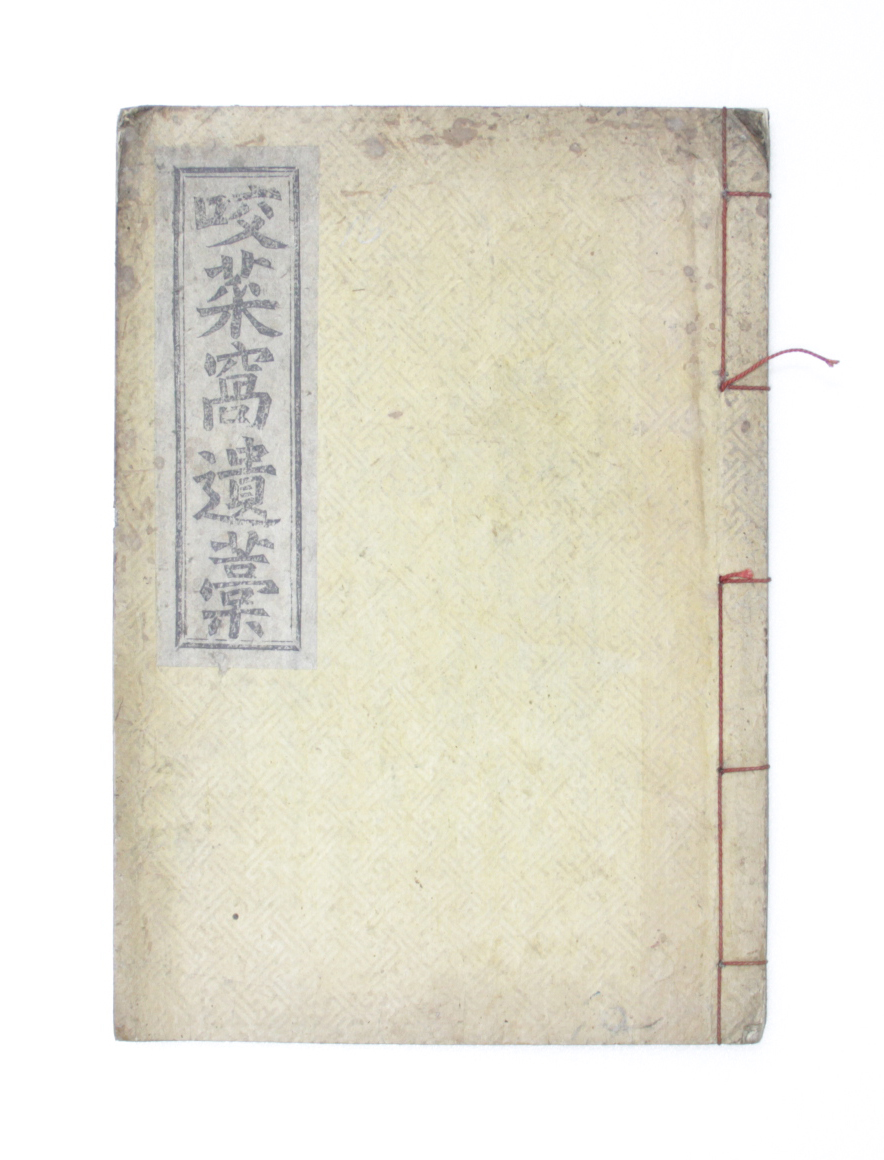 咬菜窩遺藁